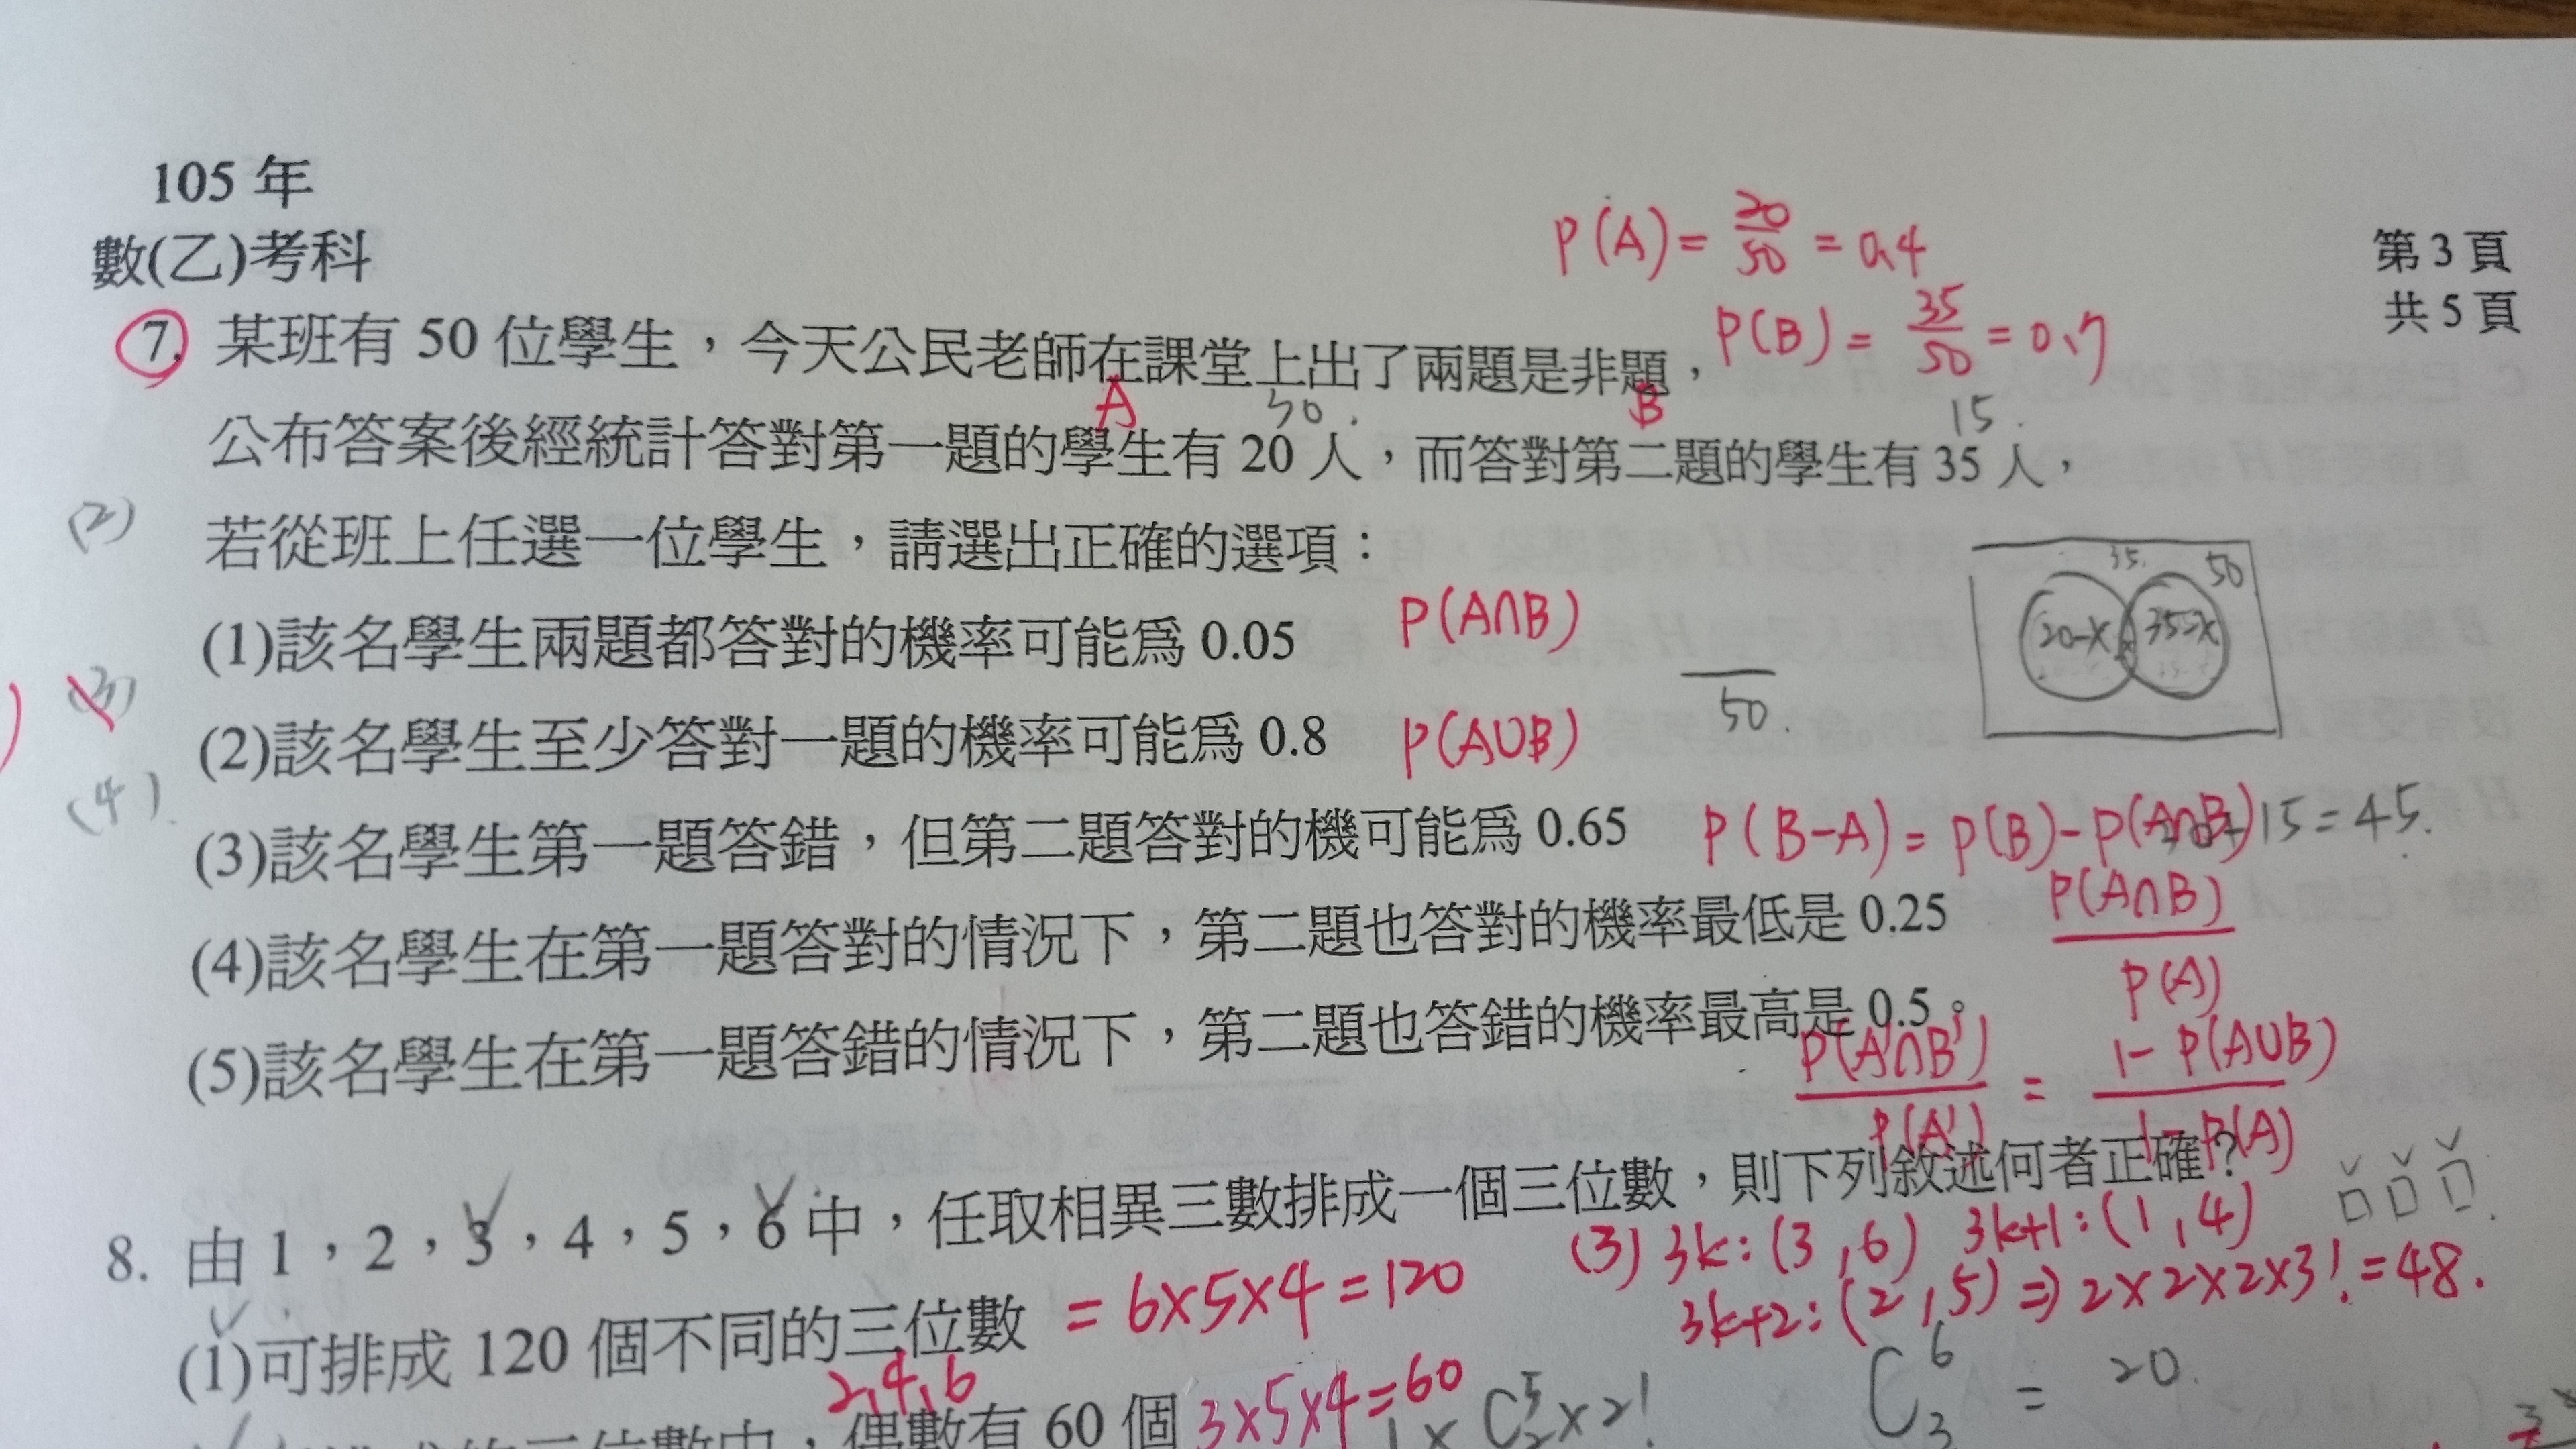 105 年
數(乙)考科
第 3 頁
共 5 頁
P(A) = 20/50 = 0.4
P(B) = 35/50 = 0.7
7. 某班有 50 位學生，今天公民老師在課堂上出了兩題是非題，
A 30. B 15.
公布答案後經統計答對第一題的學生有 20 人，而答對第二題的學生有 35 人，
(2)
若從班上任選一位學生，請選出正確的選項：
35. 50
20-x x 35-x
(1)該名學生兩題都答對的機率可能爲 0.05 P(A∩B)
(3)
50.
(2)該名學生至少答對一題的機率可能爲 0.8 P(A∪B)
(4).
(3)該名學生第一題答錯，但第二題答對的機可能爲 0.65 P(B-A) = P(B)-P(A∩B) 15=45.
(4)該名學生在第一題答對的情況下，第二題也答對的機率最低是 0.25 P(A∩B)/P(A)
(5)該名學生在第一題答錯的情況下，第二題也答錯的機率最高是 0.5。
P(A'∩B')/P(A') = 1-P(A∪B)/1-P(A)
8. 由 1，2，3，4，5，6 中，任取相異三數排成一個三位數，則下列敘述何者正確？
(3) 3k:(3,6) 3k+1:(1,4)
3k+2:(2,5) ⇒ 2×2×2×3! =48.
(1)可排成 120 個不同的三位數 = 6×5×4=120
C⁶₃ = 20.
2,4,6
三位數中，偶數有 60 個 3×5×4=60
1×C⁵₂×2!